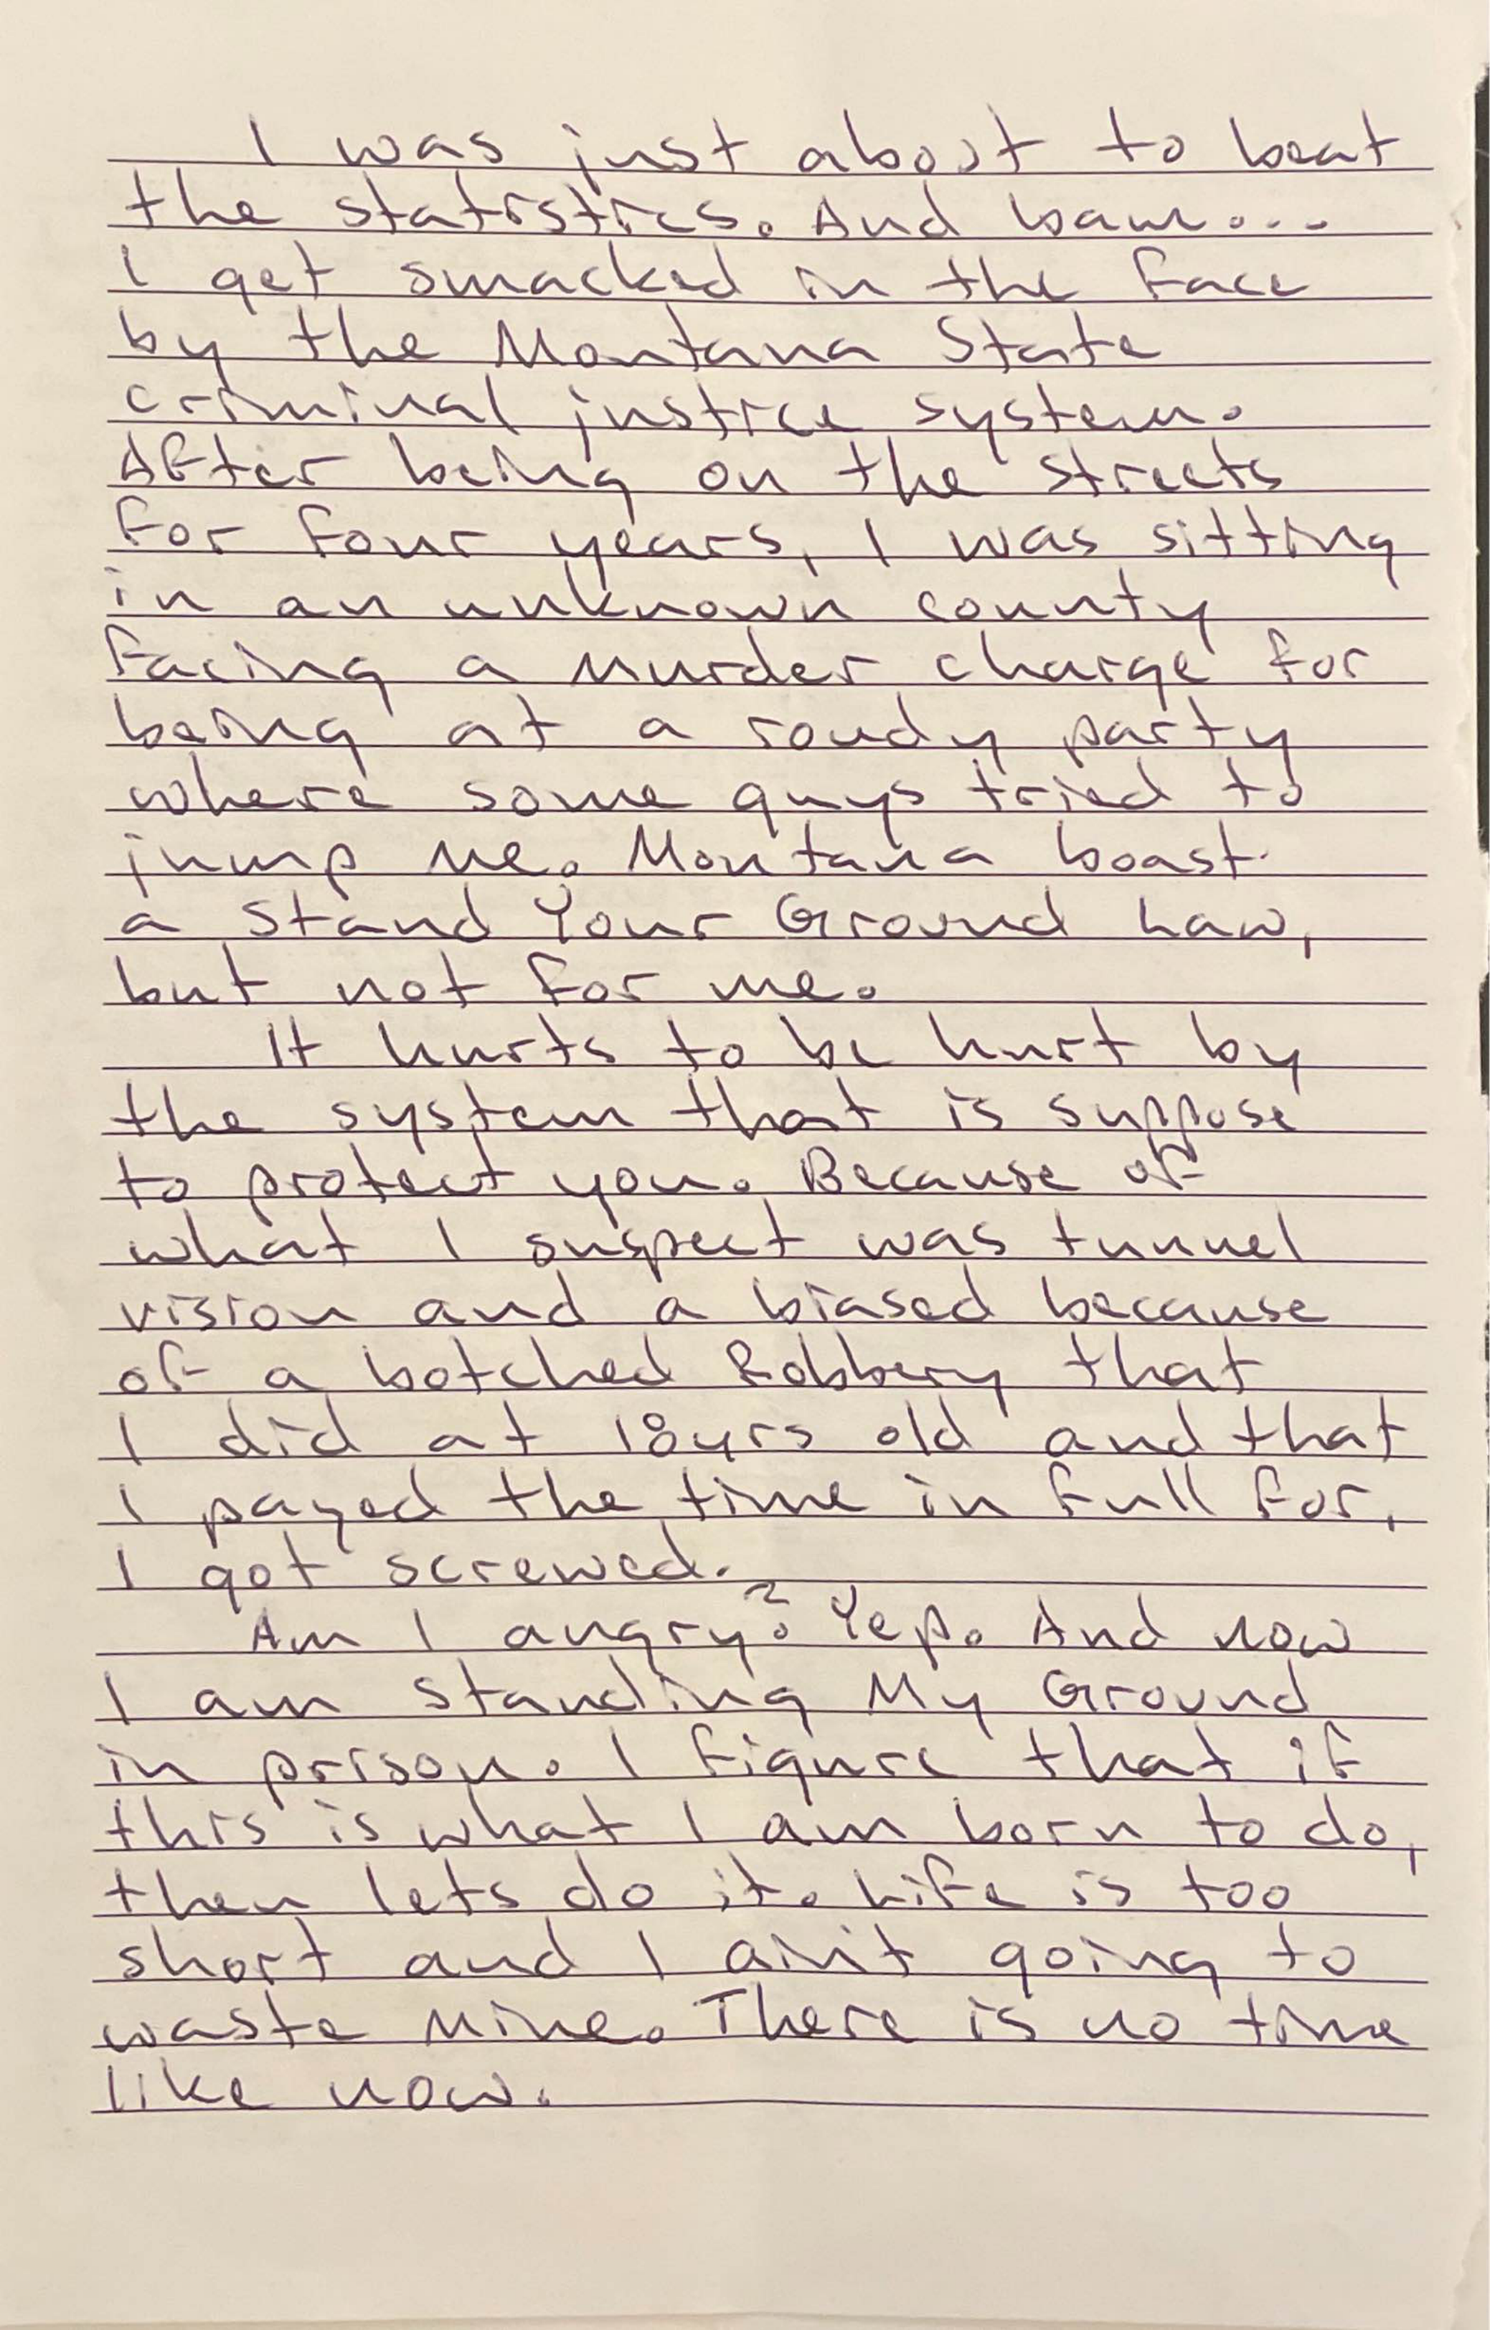 I was just about to beat
the statistics. And bam...
I get smacked in the face
by the Montana State
criminal justice system.
After being on the streets
for four years, I was sitting
in an unknown county
facing a murder charge for
being at a roudy party
where some guys tried to
jump me. Montana boast
a Stand Your Ground Law,
but not for me.
It hurts to be hurt by
the system that is suppose
to protect you. Because of
what I suspect was tunnel
vision and a biased because
of a botched Robbery that
I did at 18yrs old and that
I payed the time in full for,
I got screwed.
Am I angry? Yep. And now
I am Standing My Ground
in prison. I figure that if
this is what I am born to do,
then lets do it. Life is too
short and I ain't going to
waste mine. There is no time
like now.